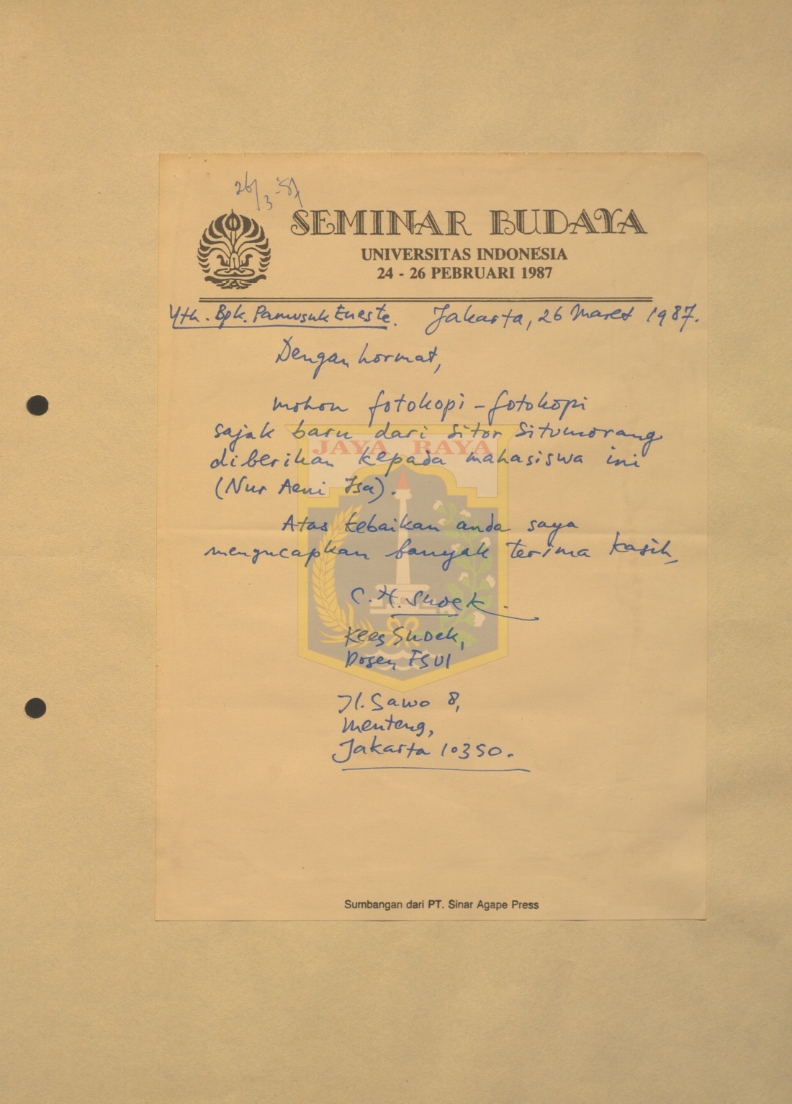 26/3-'87
SEMINAR BUDAYA
UNIVERSITAS INDONESIA
24 - 26 PEBRUARI 1987
Yth. Bpk. Pamusuk Eneste. Jakarta, 26 Maret 1987.
Dengan hormat,
mohon fotokopi-fotokopi
sajak baru dari Sitor Situmorang
JAYA RAYA
diberikan kepada mahasiswa ini
(Nur Aeni Isa).
Atas kebaikan anda saya
mengucapkan banyak terima kasih,
C. H. Snoek.
Kees Snoek,
Dosen FSUI
Jl. Sawo 8,
Menteng,
Jakarta 10350.
Sumbangan dari PT. Sinar Agape Press